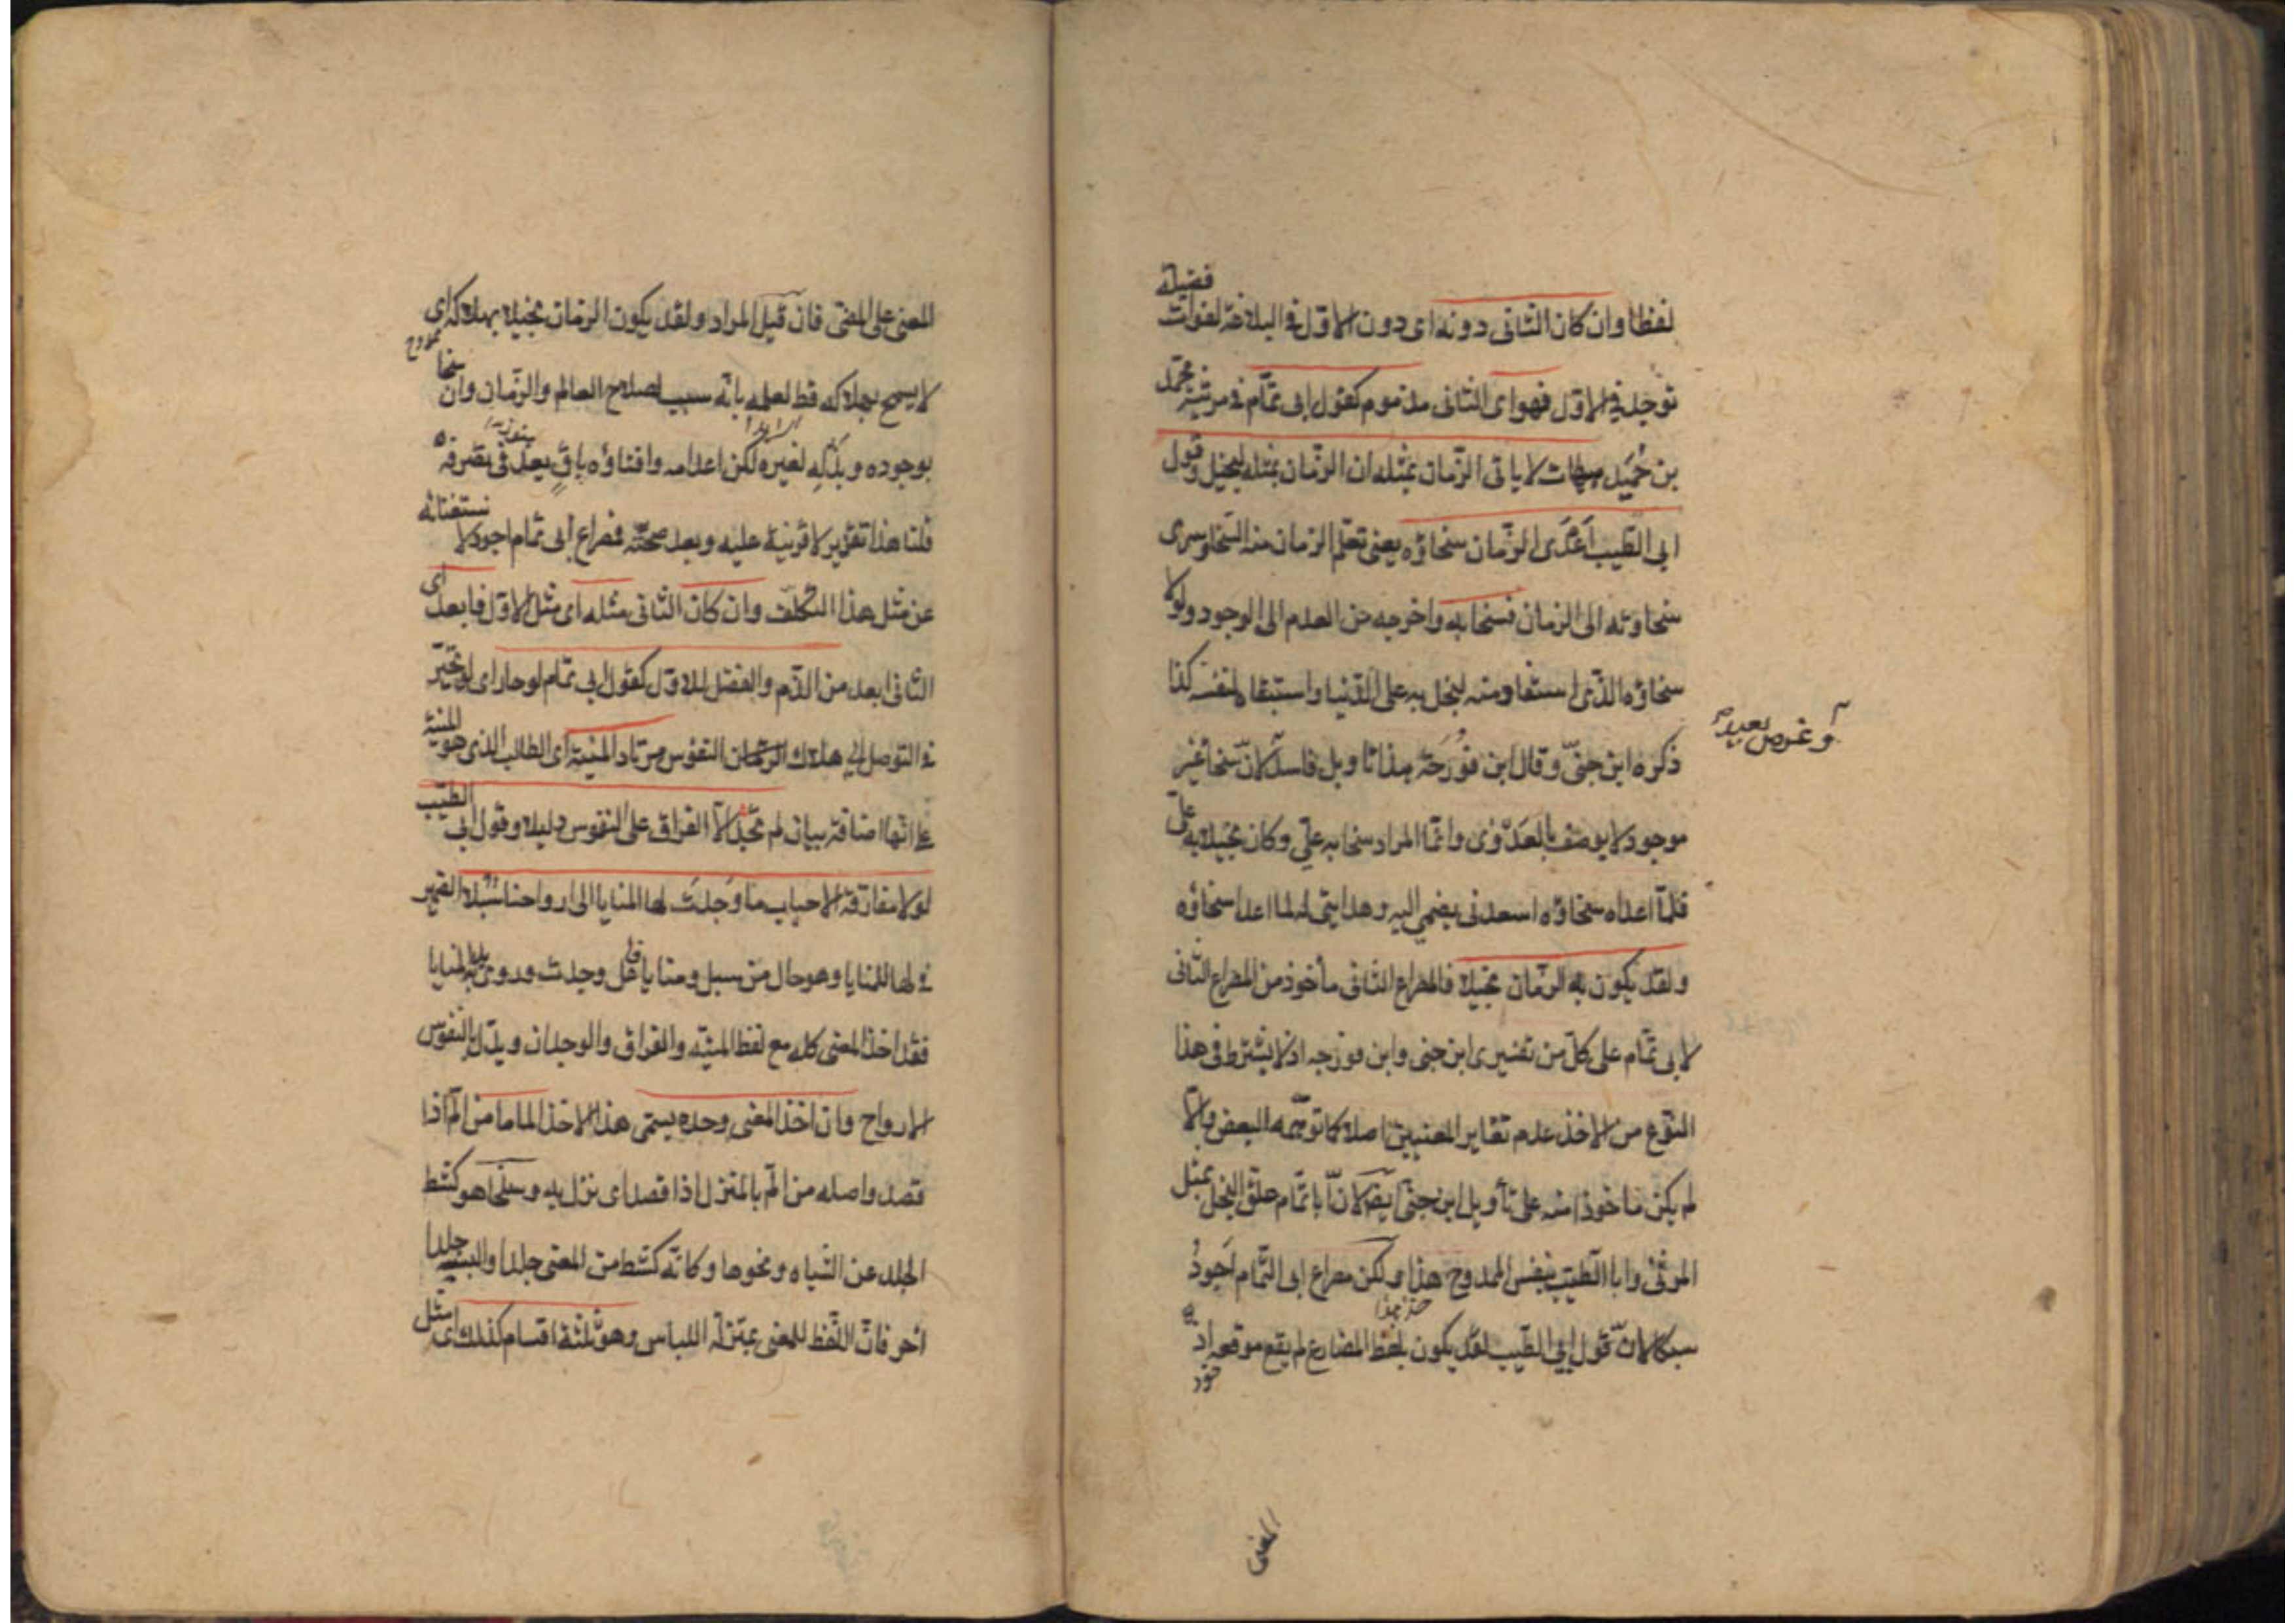 لفظا وان كان الثانى دونه اى دون الاول فى البلاغة لفوات فضيلة
توجد فى الاول فهو اى الثانى مذموم كقول ابى تمام فى مرثية محمد
بن حميد هيهات لا ياتى الزمان بمثله ان الزمان بمثله لبخيل وقول
ابى الطيب اعدى الزمان سخاؤه يعنى تعلم الزمان منه السخا وسرى
سخاوته الى الزمان فسخا به واخرجه من العدم الى الوجود ولولا
سخاؤه الذى استفاد منه لبخل به على الدنيا واستبقاه لنفسه كذا
ذكره ابن جنى وقال ابن فورجة هذا تاويل فاسد لان سخا غير
وغرض بعيد
موجود لا يوصف بالعدوى وانما المراد سخا به على وكان بخيلا به على
فلما اعداه سخاؤه اسعدنى بضمى اليه وهدايتى له لما اعدا سخاؤه
ولقد يكون به الزمان بخيلا فالمصراع الثانى مأخوذ من المصراع الثانى
لابى تمام على كل من تفسيرى ابن جنى وابن فورجه اذ لا يشترط فى هذا
النوع من الاخذ عدم تغاير المعنيين اصلا كما توهمه البعض والا
لم يكن ماخوذا منه على تأويل ابن جنى ايضا لان ابا تمام علق البخل بمثل
المرثى وابا الطيب بنفس الممدوح هذا ولكن مصراع ابى التمام اجود
سبكا لان قول ابى الطيب لقد يكون بلفظ المضارع لم يقع موقعه اذ
المعنى
المعنى على المضى فان قيل المراد ولقد يكون الزمان بخيلا بهلاكه اى
لا يسمح بهلاكه قط لعلمه بانه سبب لصلاح العالم والزمان وان سخا
بوجوده وبذله لغيره لكن اعدامه وافناؤه باق بعد فى تصرفه
قلنا هذا تقرير لا قرينة عليه وبعد صحته فمصراع ابى تمام اجود لاستغنائه
عن مثل هذا التكلف وان كان الثانى مثله اى مثل الاول فابعد اى
الثانى ابعد من الذم والفضل للاول كقول ابى تمام لو حار اى لو تحير
فى التوصل الى هلاك النفوس مرتاد المنية اى الطالب الذى هو المنية
على انها اضافة بيان لم يجد الا الفراق على النفوس دليلا وقول ابى الطيب
لولا مفارقة الاحباب ما وجدت لها المنايا الى ارواحنا سبلا الضمير
فى لها للمنايا وهو حال من سبل ومنايا فاعل وجدت وروى يد المنايا
فقد اخذ المعنى كله مع لفظ المنية والفراق والوجدان وبدل بالنفوس
الارواح وان اخذ المعنى وحده يسمى هذا الاخذ الماما من الم اذا
قصد واصله من الم بالمنزل اذا قصد اى نزل به وسلخا هو كشط
الجلد عن الشياه ونحوها وكانه كشط من المعنى جلدا والبسه جلدا
اخر فان اللفظ للمعنى بمنزلة اللباس وهو ثلثة اقسام كذلك اى مثل